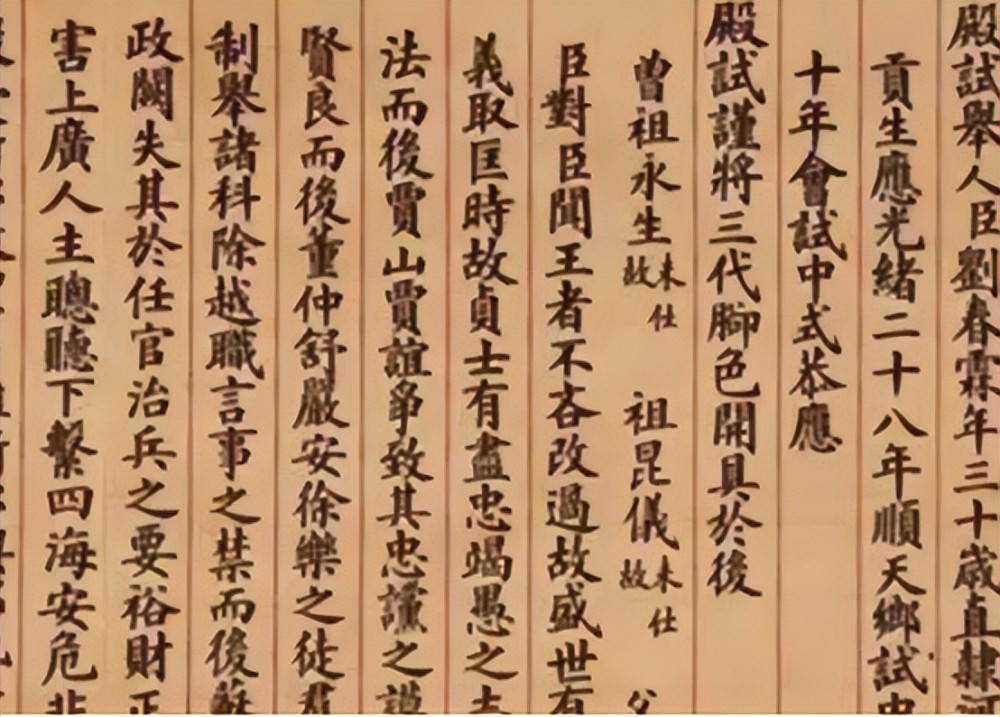 殿試舉人臣劉春霖年三十歲直隸河
貢生應光緒二十八年順天鄉試中
十年會試中式恭應
殿試謹將三代腳色開具於後
曾祖永生未仕故 祖昆儀未仕故 父
臣對臣聞王者不吝改過故盛世有
義取匡時故貞士有盡忠竭愚之志
法而後賈山賈誼爭致其忠讜之謨
賢良而後董仲舒嚴安徐樂之徒羣
制舉諸科除越職言事之禁而後蘇
政闕失其於任官治兵之要裕財正
害上廣人主聰聽下繫四海安危非